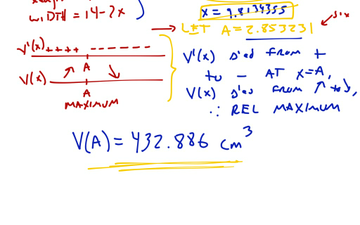 WIDTH = 14-2x
x = 9.8134355
LET A = 2.853231
six
V'(x) ++++ ------
V(x) ↗ A ↘
A
MAXIMUM
V'(x) Δ'ED FROM +
TO - AT x=A,
V(x) Δ'ED FROM ↗ TO ↘,
∴ REL MAXIMUM
V(A) = 432.886 cm³